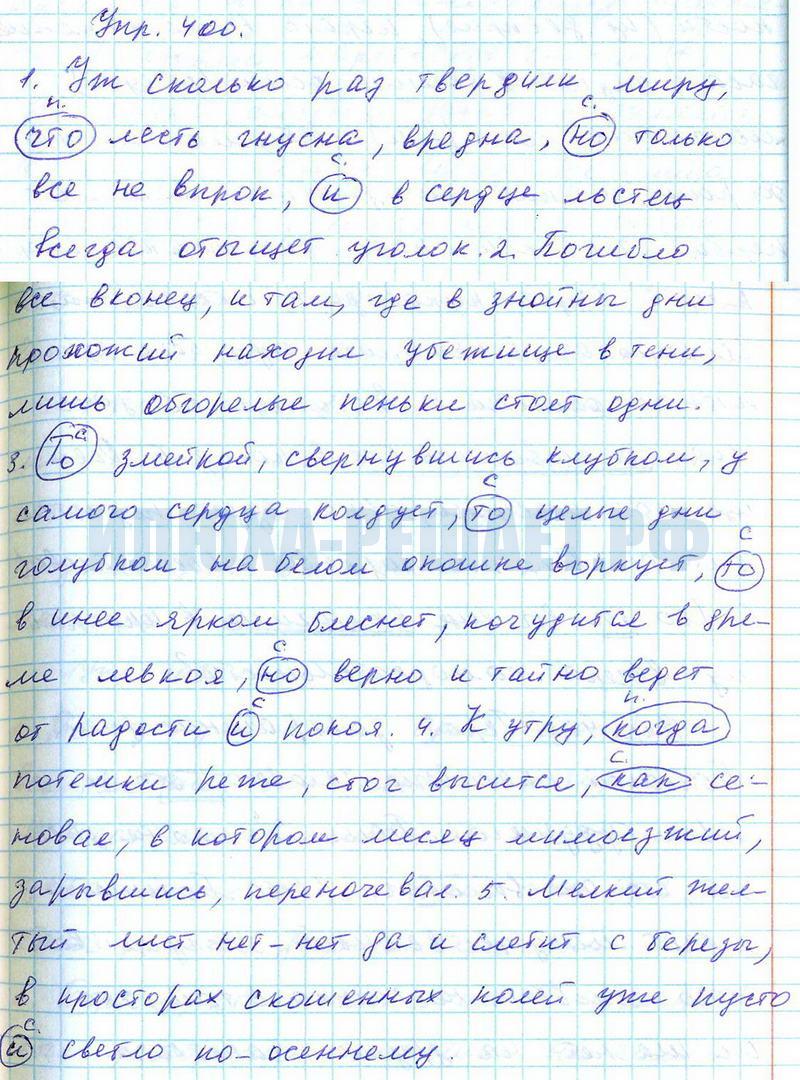 Упр. 400.
1. Уж сколько раз твердили миру,
п. с.
что лесть гнусна, вредна, но только
с.
все не впрок, и в сердце льстец
всегда отыщет уголок. 2. Погибло
все вконец, и там, где в знойны дни
прохожий находил убежище в тени,
лишь обгорелые пеньки стоят одни.
с
3. То змейкой, свернувшись клубком, у
с
самого сердца колдует, то целые дни
ИЛЮХА-РЕШАЕТ.РФ
с
голубком на белом окошке воркует, то
в инее ярком блеснет, почудится в дре-
с
ме левкоя, но верно и тайно ведет
с п.
от радости и покоя. 4. К утру, когда
с.
потемки реже, стог высится, как се-
новал, в котором месяц мимоезжий,
зарывшись, переночевал. 5. Мелкий жел-
тый лист нет-нет да и слетит с березы,
в просторах скошенных полей уже пусто
с.
и светло по-осеннему.